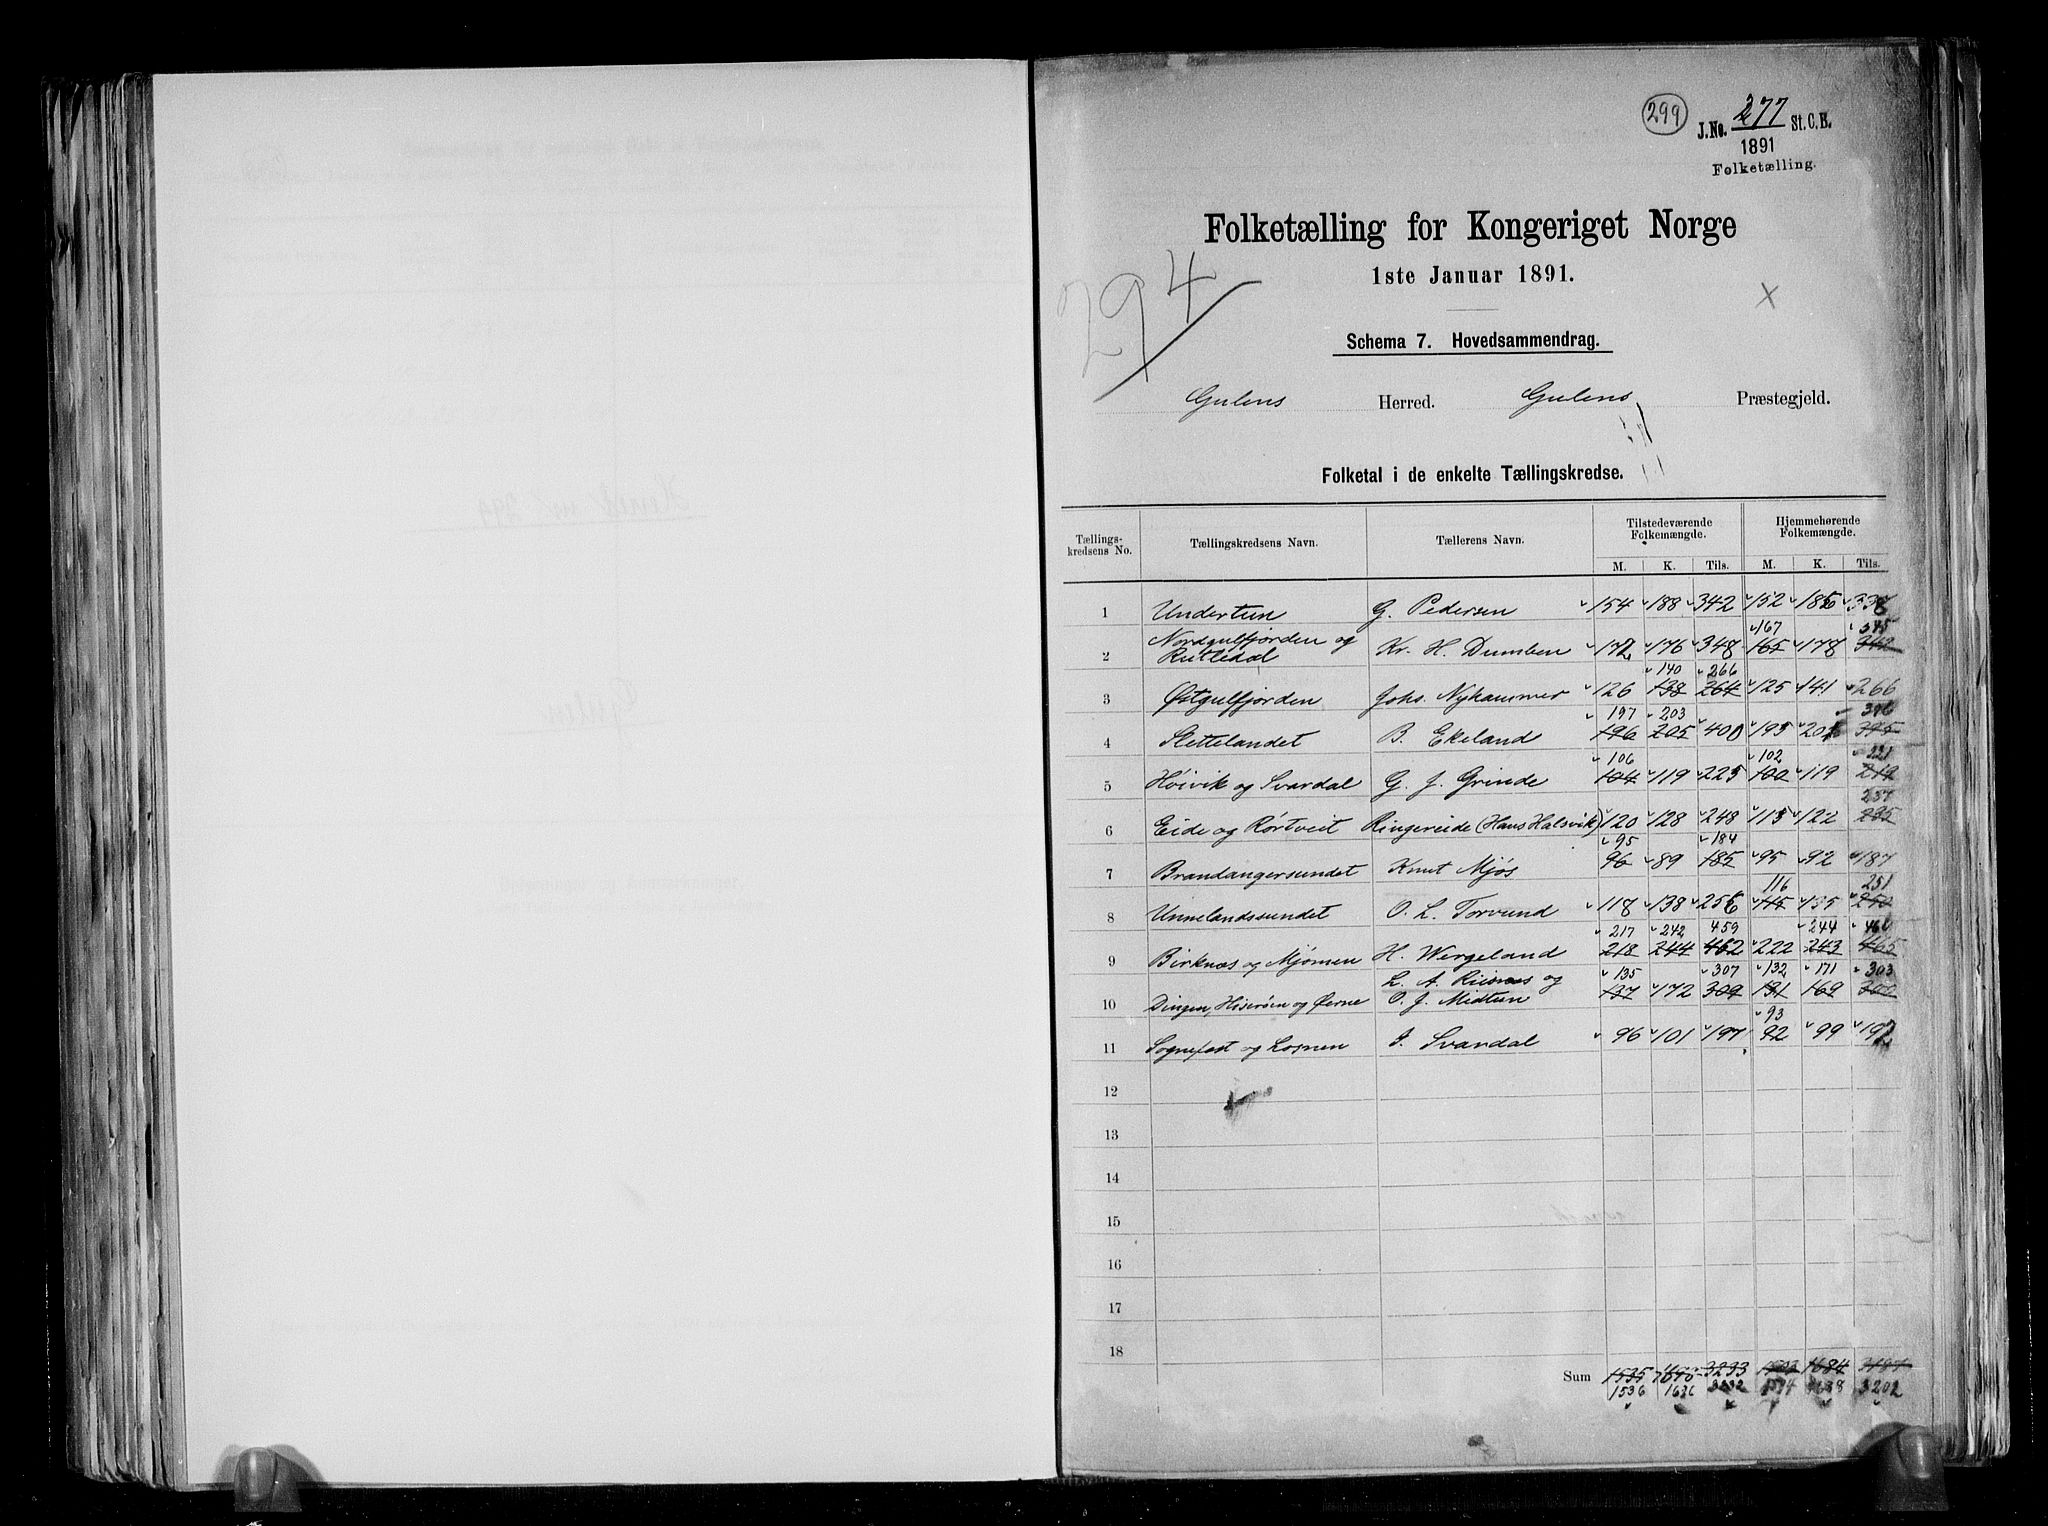 299
J.No. 277 St.C.B.
1891
Folketælling.
Folketælling for Kongeriget Norge
1ste Januar 1891.
294
Schema 7. Hovedsammendrag.
Gulens Herred. Gulens Præstegjeld.
Folketal i de enkelte Tællingskredse.
Tællingskredsens No. Tællingskredsens Navn. Tællerens Navn. Tilstedeværende Folkemængde. Hjemmehørende Folkemængde.
M. K. Tils. M. K. Tils.
1 Undertun G. Pedersen 154 188 342 152 186 338
167 345
2 Nordgulfjorden og Rutledal Kr. H. Dumben 172 176 348 165 178 342
140 266
3 Østgulfjorden Johs. Nyhammer 126 138 264 125 141 266
197 203 396
4 Slettelandet B. Ekeland 196 205 400 195 201 395
106 102 221
5 Høivik og Svardal G. J. Grinde 104 119 225 100 119 219
237
6 Eide og Rørtveit Ringereide (Hans Halsvik) 120 128 248 115 122 235
95 184
7 Brandangersundet Knut Mjøs 96 89 185 95 92 187
116 251
8 Unnelandssundet O. L. Torvund 118 138 256 115 135 250
217 242 459 244 466
9 Birknæs og Mjømen H. Wergeland 218 244 462 222 243 465
135 307 132 171 303
10 Dingen, Hiserøen og Øerne L. A. Risnæs og O. J. Midtun 137 172 309 131 169 300
93
11 Sognefast og Losnen I. Svardal 96 101 197 92 99 192
12
13
14
15
16
17
18
Sum 1535 3233 1684
1536 1696 3232 3202